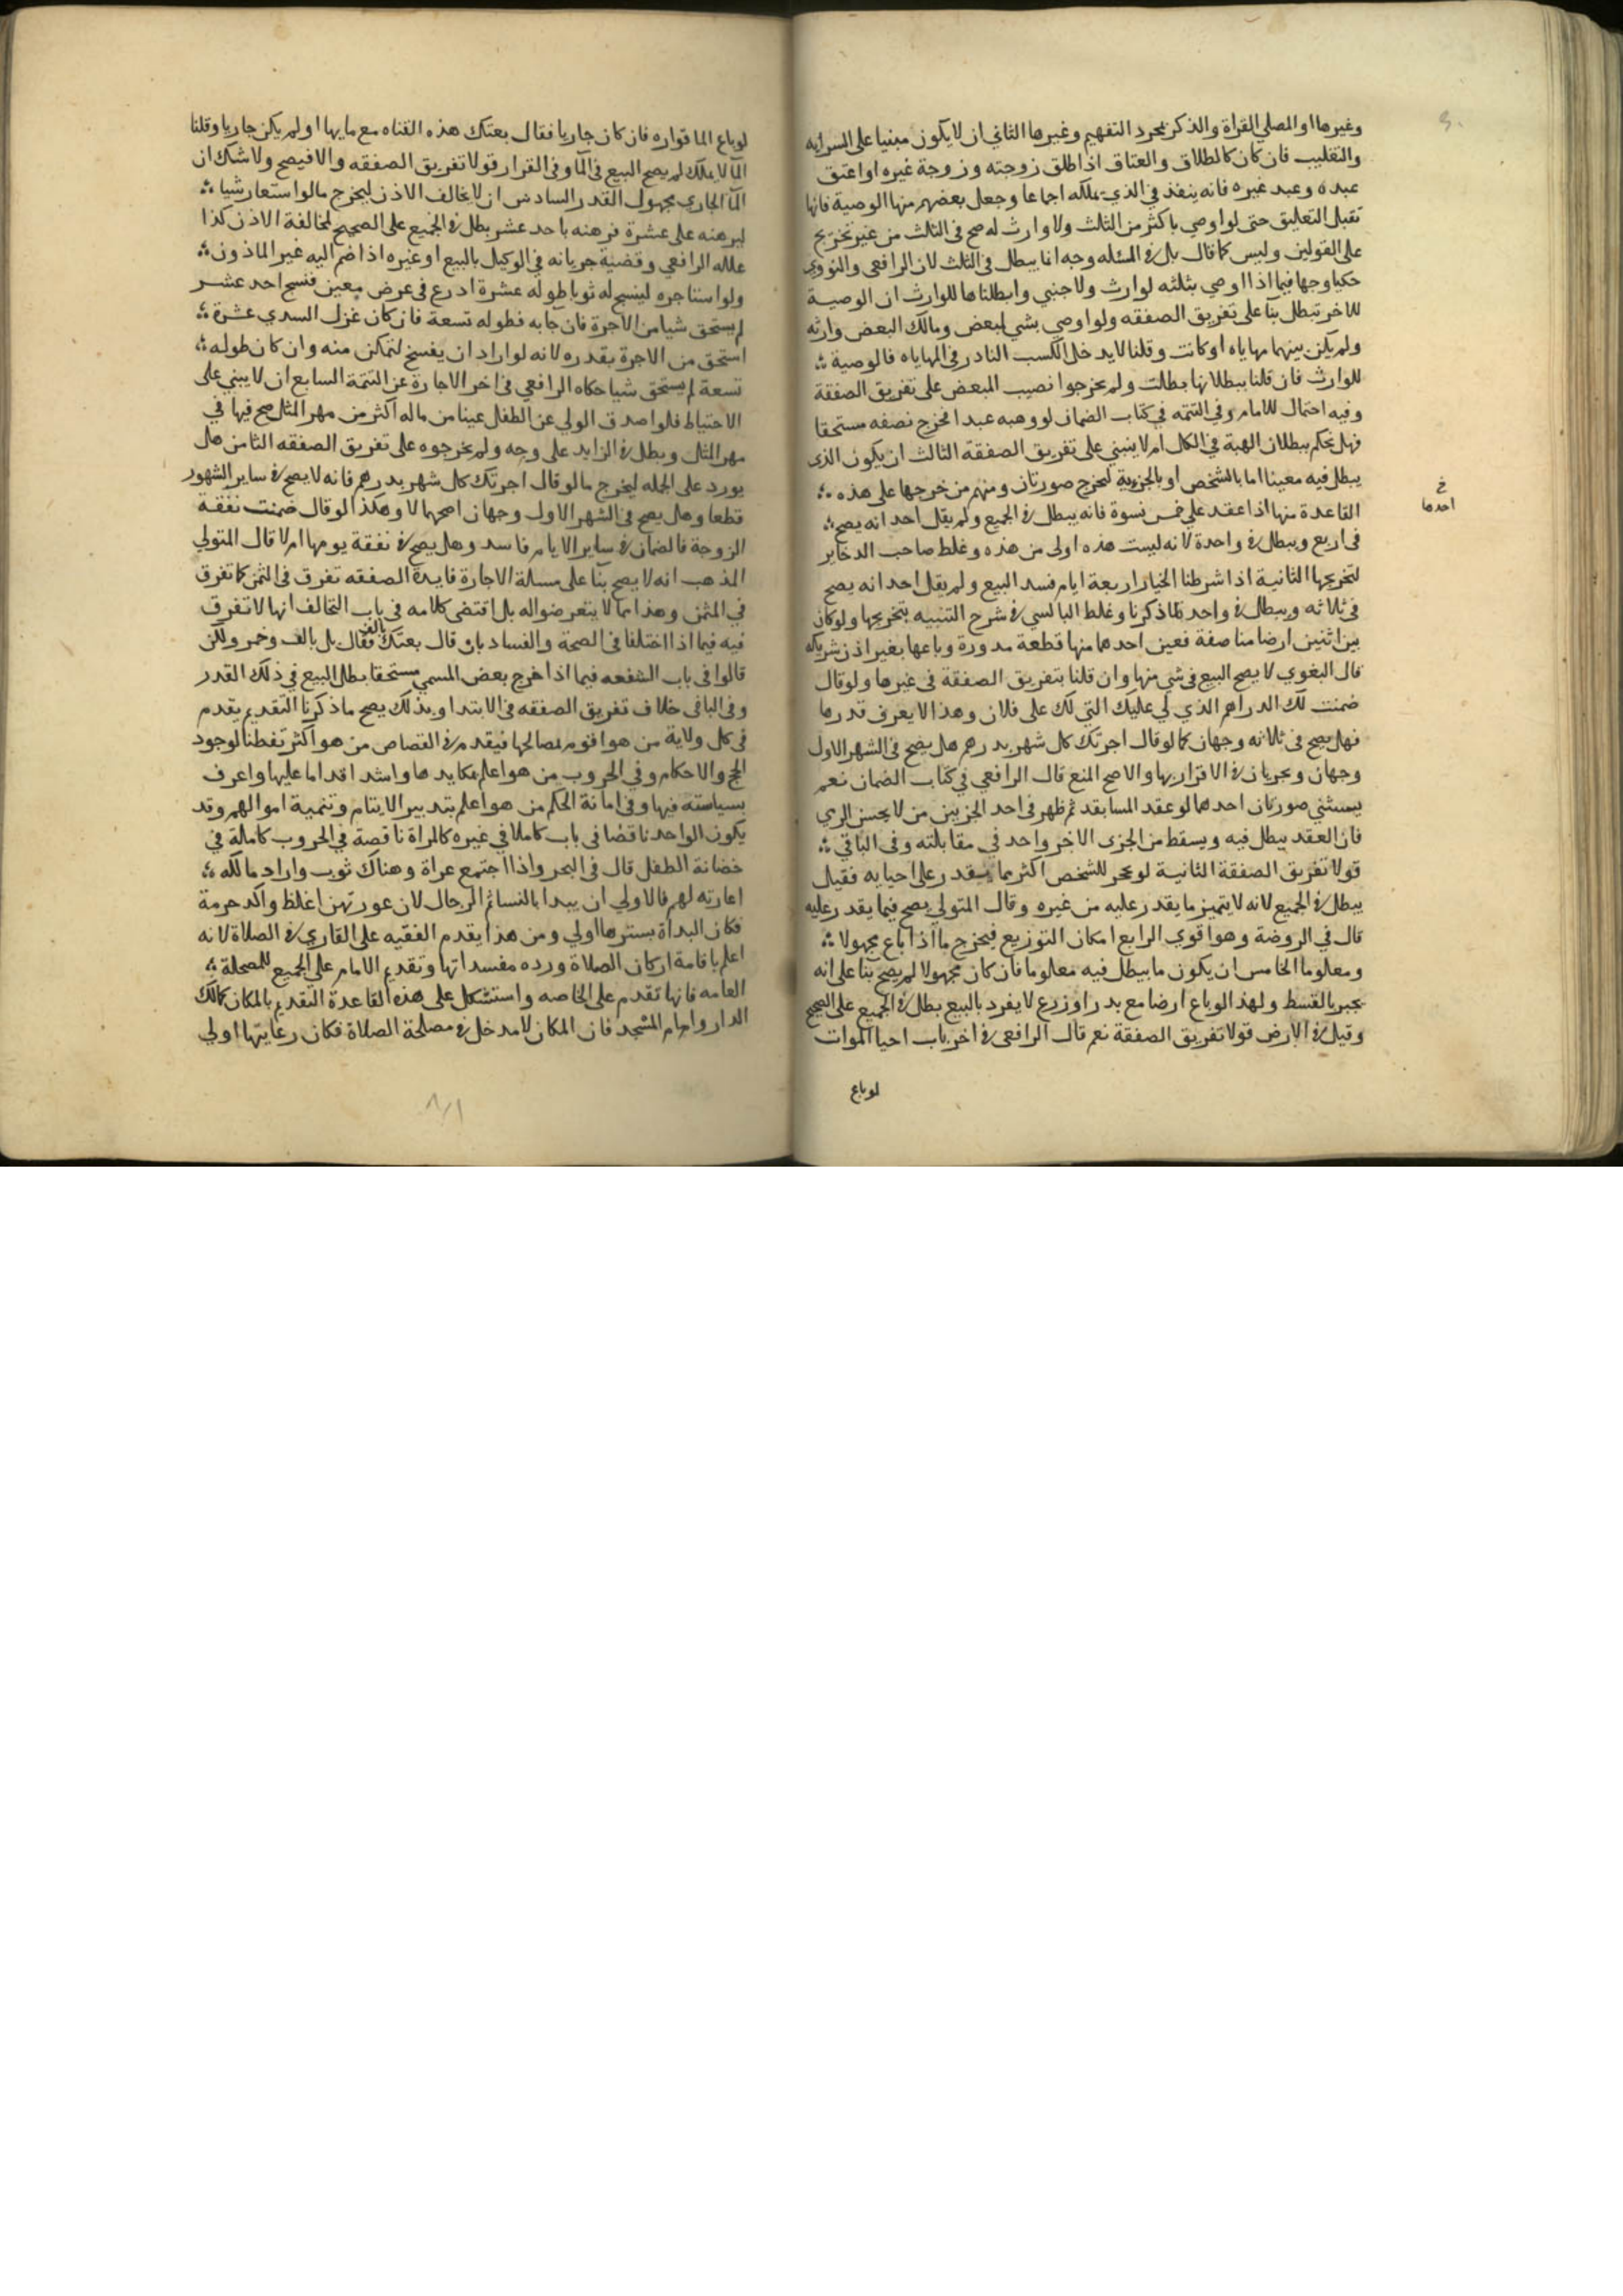 وغيرها او المصلي القراة والذكر بمجرد التفهيم وغيرها الثاني ان لا يكون مبنيا على السراية
والتغليب فان كان كالطلاق والعتاق اذا طلق زوجته وزوجة غيره او اعتق
عبده وعبد غيره فانه ينفذ في الذي يملكه اجماعا وجعل بعضهم منها الوصية فانها
تقبل التعليق حتى لو اوصي باكثر من الثلث ولا وارث له صح فى الثلث من غير تخريج
على القولين وليس كما قال بل في المسله وجه انا يبطل فى الثلث لان الرافعى والنووي
حكيا وجها فيما اذا اوصي بثلثه لوارث ولاجنبي وابطلناها للوارث ان الوصية
للاخر تبطل بنا على تفريق الصفقه ولو اوصي بشي لبعض ومالك البعض وارثه
ولم يكن بينهما مهاياه او كانت وقلنا لا يدخل الكسب النادر في المهاياه فالوصية
للوارث فان قلنا ببطلانها بطلت ولم يخرجوا نصيب المبعض على تفريق الصفقة
وفيه احتمال للامام وفي التتمه في كتاب الضمان لو وهبه عبدا فخرج نصفه مستحقا
فهل نحكم ببطلان الهبة في الكل ام لا ينبني على تفريق الصفقة الثالث ان يكون الذى
يبطل فيه معينا اما بالشخص او بالجزوية ليخرج صورتان ومنهم من خرجها على هذه
القاعدة منها اذا عقد على خمس نسوة فانه يبطل في الجميع ولم يقل احد انه يصح
خ
احدها
فى اربع ويبطل في واحدة لانه ليست هذه اولى من هذه وغلط صاحب الدخاير
لتخريجها الثانية اذا شرطنا الخيار اربعة ايام فسد البيع ولم يقل احد انه يصح
فى ثلاثه ويبطل في واحد لما ذكرنا وغلط البالسي في شرح التنبيه بتخريجها ولو كان
بين اثنين ارضا مناصفة فعين احدهما منها قطعة مدورة وباعها بغير اذن شريكه
قال البغوي لا يصح البيع فى شي منها وان قلنا بتفريق الصفقة فى غيرها ولو قال
ضمنت لك الدراهم الذي لي عليك التي لك على فلان وهذا لا يعرف قدرها
فهل يصح فى ثلاثه وجهان كما لو قال اجرتك كل شهر بدرهم هل يصح فى الشهر الاول
وجهان ويجريان في الاقرار بها والاصح المنع قال الرافعي في كتاب الضمان نعم
يستثني صورتان احدهما لو عقد المسابقه ثم ظهر فى احد الحزبين من لا يحسن الرمي
فان العقد يبطل فيه ويسقط من الجزى الاخر واحد في مقابلته وفى الباقي
قولا تفريق الصفقة الثانية لو تحجر الشخص اكثر مما يقدر على احيايه فقيل
يبطل في الجميع لانه لا يتميز ما يقدر عليه من غيره وقال المتولي يصح فيما يقدر عليه
قال في الروضة وهو اقوي الرابع امكان التوزيع فيخرج ما اذا باع مجهولا
ومعلوما الخامس ان يكون ما يبطل فيه معلوما فان كان مجهولا لم يصح بنا على انه
يجبر بالقسط ولهذا لو باع ارضا مع بدر او زرع لا يفرد بالبيع بطل في الجميع على الصحيح
وقيل في الارض قولا تفريق الصفقة نعم قال الرافعى في اخر باب احيا الموات
لو باع
لو باع الما قواره فان كان جاريا فقال بعتك هذه القناه مع مايها او لم يكن جاريا وقلنا
الما لا يملك لم يصح البيع فى الما وفى القرار قولا تفريق الصفقه والا فيصح ولا شك ان
الما الجاري مجهول القدر السادس ان لا يخالف الاذن ليخرج ما لو استعار شيا
ليرهنه على عشرة فرهنه باحد عشر بطل في الجميع على الصحيح لمخالفة الاذن كذا
علله الرافعي وقضية جريانه في الوكيل بالبيع او غيره اذا ضم اليه غير الماذون
ولو استاجره لينسج له ثوبا طوله عشرة اذرع فى عرض معين فنسج احد عشر
لم يستحق شيا من الاجرة فان جا به فطوله تسعة فان كان غزل السدي عشرة
استحق من الاجرة بقدره لانه لو اراد ان يفسخ لتمكن منه وان كان طوله
تسعة لم يستحق شيا حكاه الرافعي فى اخر الاجارة عن التتمة السابع ان لا يبني على
الاحتياط فلو اصدق الولي عن الطفل عينا من ماله اكثر من مهر المثل صح فيها في
مهر المثل وبطل في الزايد على وجه ولم يخرجوه على تفريق الصفقه الثامن هل
يورد على الجمله ليخرج ما لو قال اجرتك كل شهر بدرهم فانه لا يصح في ساير الشهور
قطعا وهل يصح فى الشهر الاول وجهان اصحهما لا وهكذا لو قال ضمنت نفقة
الزوجة فالضمان في ساير الايام فاسد وهل يصح في نفقة يومها ام لا قال المتولي
المذهب انه لا يصح بنا على مسالة الاجارة فايدة الصفقه تفرق فى الثمن كما تفرق
في المثمن وهذا مما لا يتعرضوا له بل اقتضى كلامه فى باب التحالف انها لا تفرق
فيه فيما اذا اختلفا فى الصحة والفساد بان قال بعتك بالف فقال بل بالف وخمر ولكن
قالوا فى باب الشفعه فيما اذا خرج بعض المسمي مستحقا بطل البيع في ذلك القدر
وفى الباقى خلاف تفريق الصفقه فى الابتدا وبذلك يصح ما ذكرنا التقديم يقدم
فى كل ولاية من هو اقوم بمصالحها فيقدم في القصاص من هو اكثر تفطنا لوجود
الحج والاحكام وفي الحروب من هو اعلم بمكايدها واشد اقداما عليها واعرف
بسياسته فيها وفى امانة الحكم من هو اعلم بتدبير الايتام وتنمية اموالهم وقد
يكون الواحد ناقصا فى باب كاملا في غيره كالمراة ناقصة في الحروب كاملة في
حضانة الطفل قال فى البحر واذا اجتمع عراة وهناك ثوب واراد مالكه
اعارته لهم فالاولي ان يبدا بالنسا ثم الرجال لان عورتهن اغلظ واكد حرمة
فكان البداة بسترها اولي ومن هذا يقدم الفقيه على القاري في الصلاة لانه
اعلم باقامة اركان الصلاة ورده مفسداتها وتقديم الامام على الجميع للمصحلة
العامه فانها تقدم على الخاصه واستشكل على هذه القاعدة التقديم بالمكان كمالك
الدار وامام المسجد فان المكان لا مدخل في مصلحة الصلاة فكان رعايتها اولي